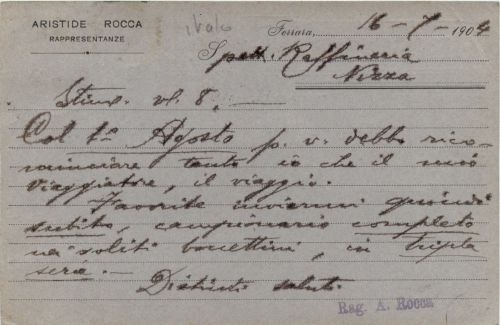 ARISTIDE ROCCA
RAPPRESENTANZE
Ferrara, 16-7-1904
Spett. Raffineria
Nizza
Stim. vs. 8,—
Col 1º Agosto p. v. debbo rico-
minciare tanto io che il mio
viaggiatore, il viaggio.
Favorite inviarmi quindi
subito, campionario completo
nei soliti boccettini, in tripla
serie.—
Distinti saluti
Rag. A. Rocca